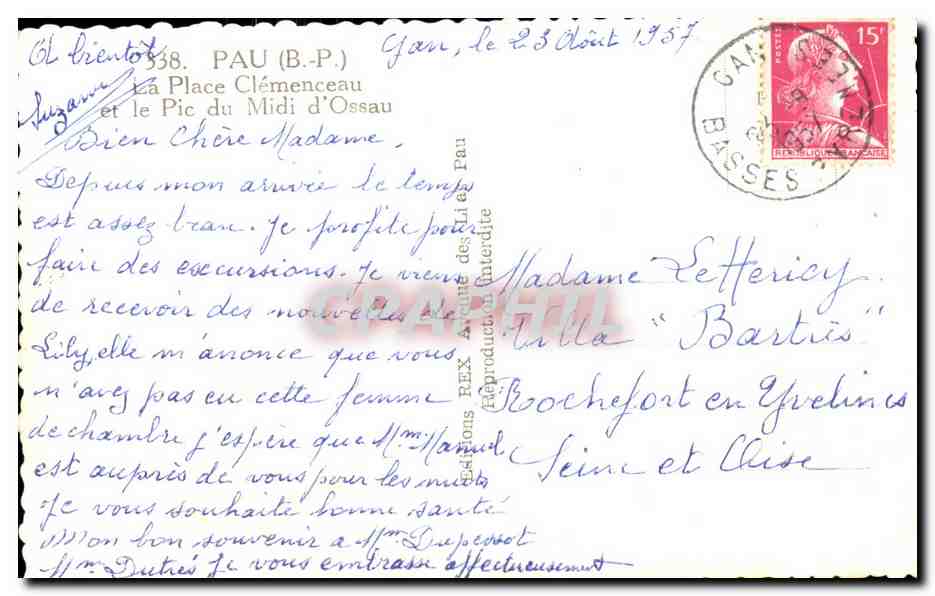 A bientôt
Suzanne
338. PAU (B.-P.)
La Place Clémenceau
et le Pic du Midi d'Ossau
Gan, le 23 Août 1957
POSTES
15F
REPUBLIQUE FRANÇAISE
GAN
BASSES PYRENEES
Bien Chère Madame,
Depuis mon arrivée le temps
est assez beau. Je profite pour
faire des excursions. Je viens
de recevoir des nouvelles de
Lily, elle m'anonce que vous
n'avez pas eu cette femme
de chambre j'espère que Mme Manuel
est auprès de vous pour les nuits
Je vous souhaite bonne santé
Mon bon souvenir a Mme Duperrot
Mme Dutrés Je vous embrasse affectueusement
Editions REX Avenue des Lilas Pau
Reproduction Interdite
Madame Le Hericy
Villa "Bartrès"
Rochefort en Yvelines
Seine et Oise
CPAPHIL